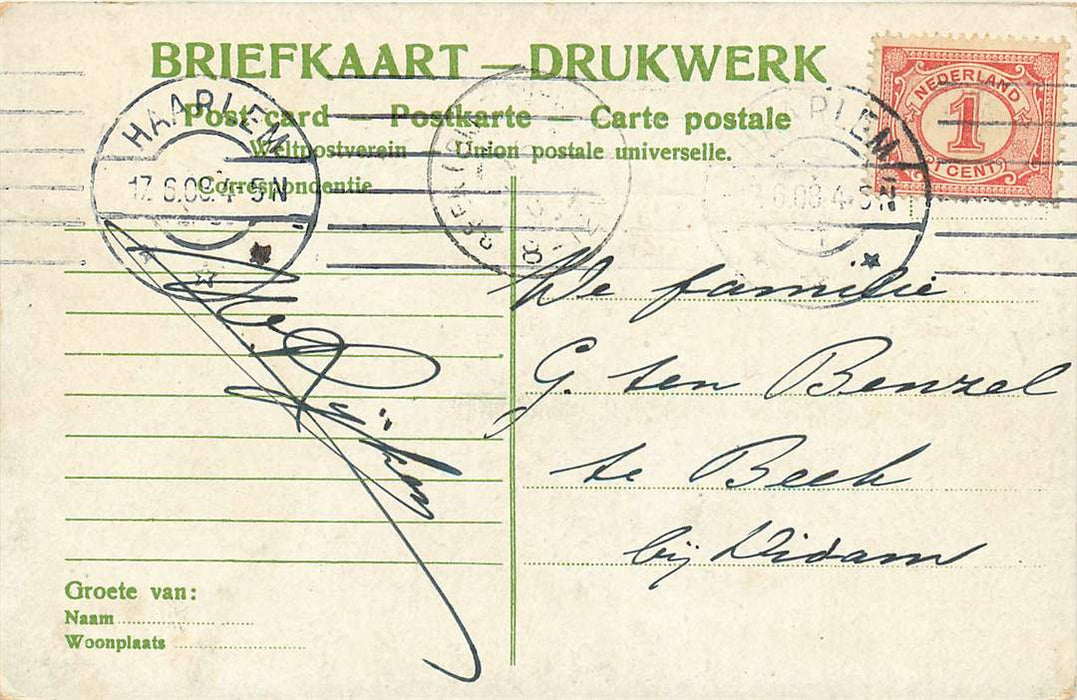 BRIEFKAART — DRUKWERK
Post card — Postkarte — Carte postale
Weltpostverein Union postale universelle.
Correspondentie
HAARLEM
17.6.08.4-5N
HAARLEM
17.6.08.4-5N
NEDERLAND
1
1 CENT
De familie
G. ten Benzel
te Beek
bij Didam
Groete van:
Naam
Woonplaats